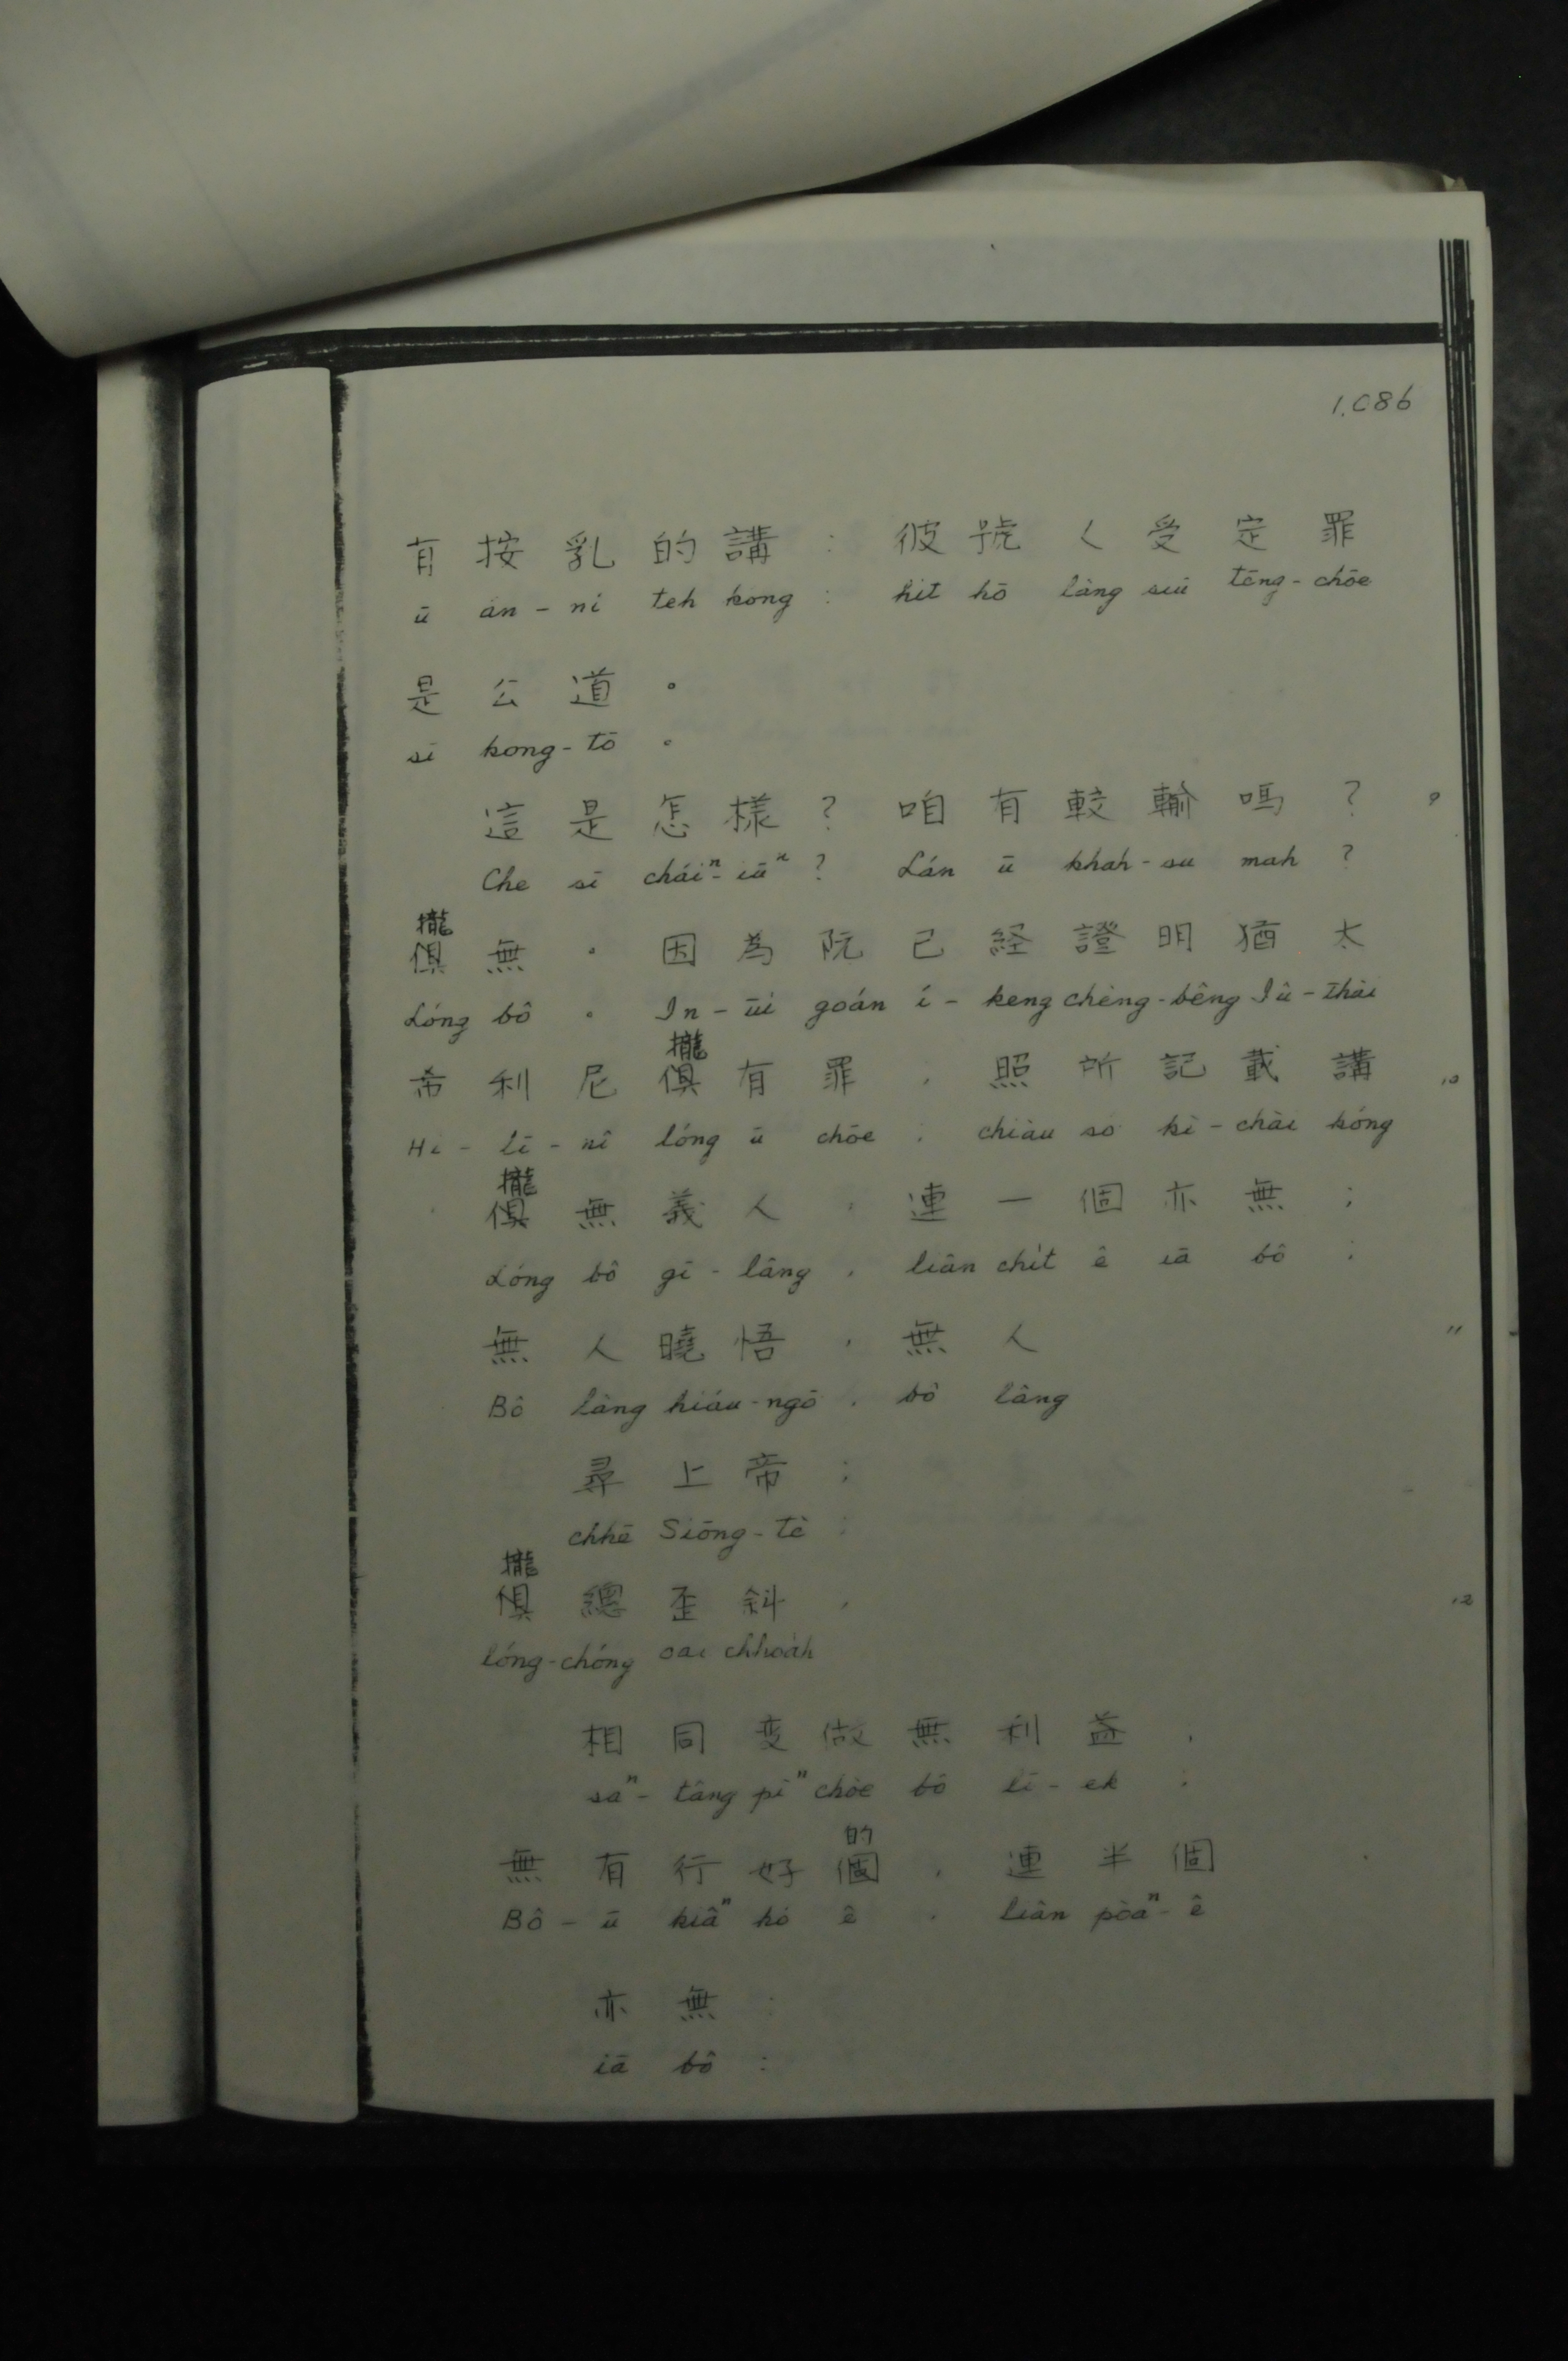 1.086
有按乳的講：彼號人受定罪
ū án-ni teh kóng : hit hō lâng siū tēng-chōe
是公道。
sī kong-tō 。
這是怎樣？咱有較輸嗎？ 9
Che sī cháiⁿ-iūⁿ ? Lán ū khah-su mah ?
攏
俱無。因為阮已経證明猶太
Lóng bô 。 In-ūi goán í-keng chèng-bêng Iû-thài
攏
希利尼俱有罪，照所記載講 10
Hi-lī-nî lóng ū chōe , chiàu só kì-chài kóng
攏
俱無義人，連一個亦無；
Lóng bô gī-lâng , liân chi̍t ê iā bô ;
無人曉悟，無人 11
Bô lâng hiáu-ngō , bô lâng
尋上帝；
chhē Siōng-tè ;
攏
俱總歪斜， 12
lóng-chóng oai chhoa̍h
相同变做無利益；
saⁿ-tâng pìⁿ chòe bô lī-ek ;
的
無有行好個，連半個
Bô-ū kiâⁿ hó ê , liân pòaⁿ-ê
亦無：
iā bô :